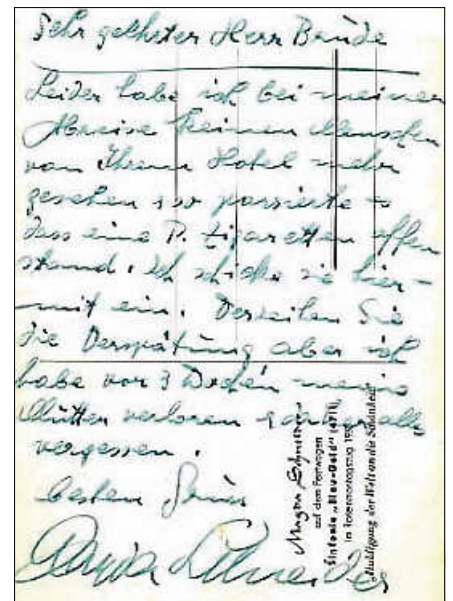 Sehr geehrter Herr Brüde
Leider habe ich bei meiner
Abreise keinen Menschen
von Ihrem Hotel mehr
gesehen so passierte es
dass eine P. Zigaretten offen
stand. Ich schicke sie hier-
mit ein. Verzeihen Sie
die Verspätung aber ich
habe vor 3 Wochen meine
Mutter verloren & alles
vergessen.
besten Gruss
Magda Schneider
Magda Schneider
auf dem Festwagen
Sinfonie „Blau-Gold“
im Rosenmontagszug
„Huldigung der Welt an die Schönheit“